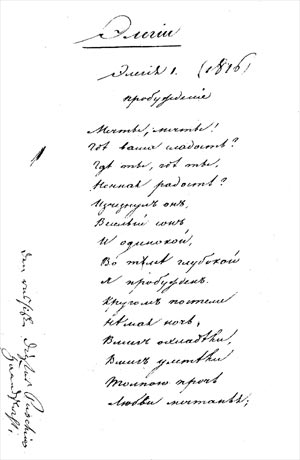 Элегіи
Элегія 1. (1816)
пробужденіе
Мечты, мечты!
Гдѣ ваша сладость?
Гдѣ ты, гдѣ ты,
Ночная радость?
Изчезнулъ онъ,
Веселый сонъ,
И одинокой,
Во тьмѣ глубокой
Я пробужденъ.
Кругомъ постели
Нѣмая ночь,
Вмигъ охладѣли,
Вмигъ улетѣли
Толпою прочь
Любви мечтанья;